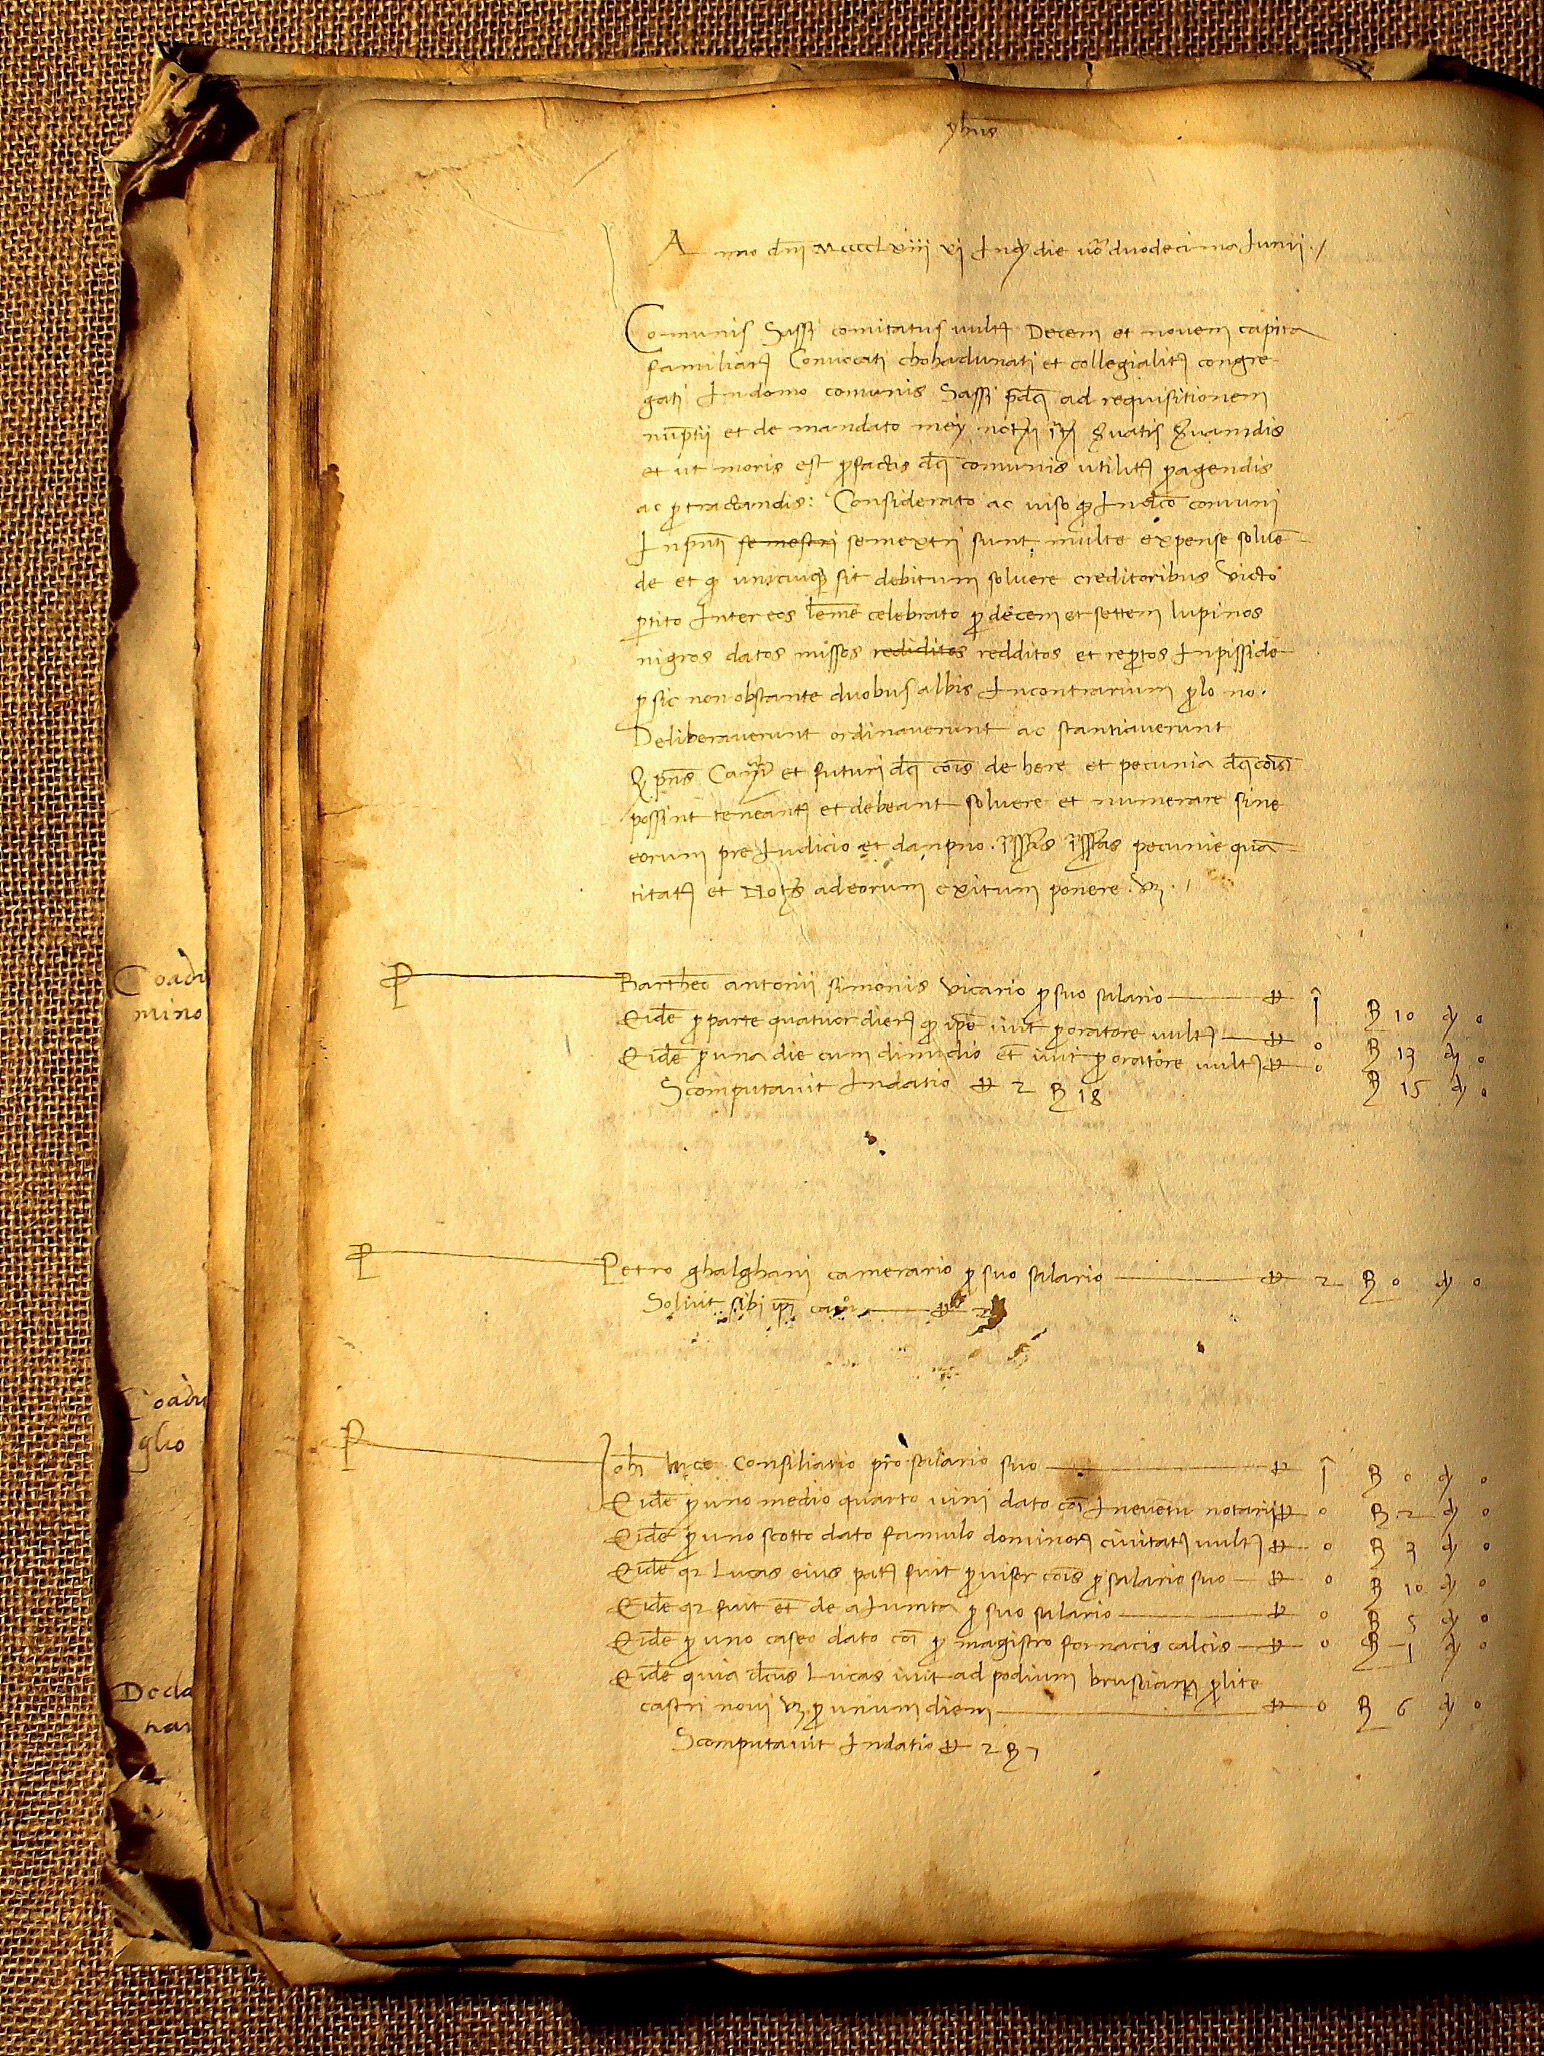 yhus
Anno dnj Mcccclxiiii xi Ind die vo duodecima Junii
Comunis Sassi comitatus vult Decem et novem capita
familiar Convocati chohadunati et collegialit congre
gati In domo comunis Sassi pdq ad requisitionem
nuptii et de mandato mey not
et ut moris est p factis dq comunis utilit p agendis
ac p tractandis: Considerato ac viso q In dco comuni
In pnti semestri semextri sunt multe expense solue
de et q unicuiq sit debitum soluere creditoribus victo
ptito Inter eos leme celebrato p decem et settem lupinos
nigros datos missos redditos redditos et reptos In pisside
p sic non obstante duobus albis In contrarium p lo no.
Deliberaverunt ordinaverunt ac stantiaverunt
q pns et futuri dq cois de here et pecunia dq cois
possint teneant et debeant soluere et numerare sine
eorum pre Iudicio et danpno. pecunie qua
titat et Nots ad eorum exitum ponere. vz.
P Bartheo antonii simonis vicario p suo salario ℔ i ß 10 ₰ 0
Eide p parte quatuor dier q ipe ivit p oratore vult ℔ 0 ß 13 ₰ 0
Eide p una die cum dimidio et ivit p oratore vult ℔ 0 ß 15 ₰ 0
Scomputavit In datio ℔ 2 ß 18
P Petro ghalghani camerario p suo salario ℔ 2 ß 0 ₰ 0
Soluit sibi ipi ℔ 2
P Johi luce consiliario pro salario suo ℔ i ß 0 ₰ 0
Eide p uno medio quarto vini dato coi In eventu notarii ℔ 0 ß 2 ₰ 0
Eide p uno scotto dato famulo dominor civitat vult ℔ 0 ß 3 ₰ 0
Eide qr Lucas eius pat fuit pviser cois p salario suo ℔ 0 ß 10 ₰ 0
Eide qr fuit et de aIunta p suo salario ℔ 0 ß 5 ₰ 0
Eide p uno caseo dato coi p magistro fornacis calcis ℔ 0 ß 1 ₰ 0
Eide quia dcus Lucas ivit ad podium brustian p lite
castri novi vz p unum diem ℔ 0 ß 6 ₰ 0
Scomputavit In datio ℔ 2 ß 7
Coadu
mino
Coadu
glio